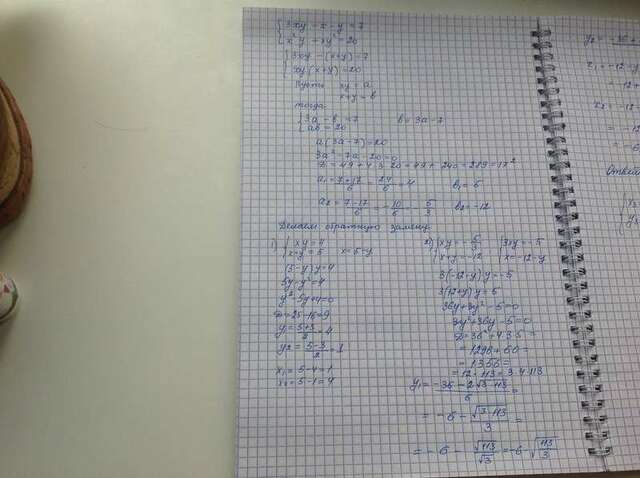 3xy - x - y = 7
x²y + xy² = 20
3xy - (x+y) = 7
xy(x+y) = 20
Пусть xy = a
x+y = b
тогда
3a - b = 7 b = 3a - 7
ab = 20
a(3a-7) = 20
3a² - 7a - 20 = 0
D = 49 + 4·3·20 = 49 + 240 = 289 = 17²
a₁ = 7+17/6 = 24/6 = 4 b₁ = 5
a₂ = 7-17/6 = -10/6 = -5/3 b₂ = -12
Делаем обратную замену
1) xy = 4
x+y = 5 x = 5-y
(5-y)y = 4
5y - y² = 4
y² - 5y + 4 = 0
D = 25 - 16 = 9
y = 5+3/2 = 4
y₂ = 5-3/2 = 1
x₁ = 5-4 = 1
x₂ = 5-1 = 4
2) xy = -5/3 3xy = -5
x+y = -12 x = -12-y
3(-12-y)y = -5
3(12+y)y = 5
36y + 3y² - 5 = 0
3y² + 36y - 5 = 0
D = 36² + 4·3·5 =
= 1296 + 60 =
= 1356 =
= 12·113 = 3·4·113
y₁ = -36 - 2√3·113/6 =
= -6 - √3·113/3 =
= -6 - √113/√3 = -6 - √113/3
x₁ = -12 - y
x₂ = -12
= -12
= -6
Ответ